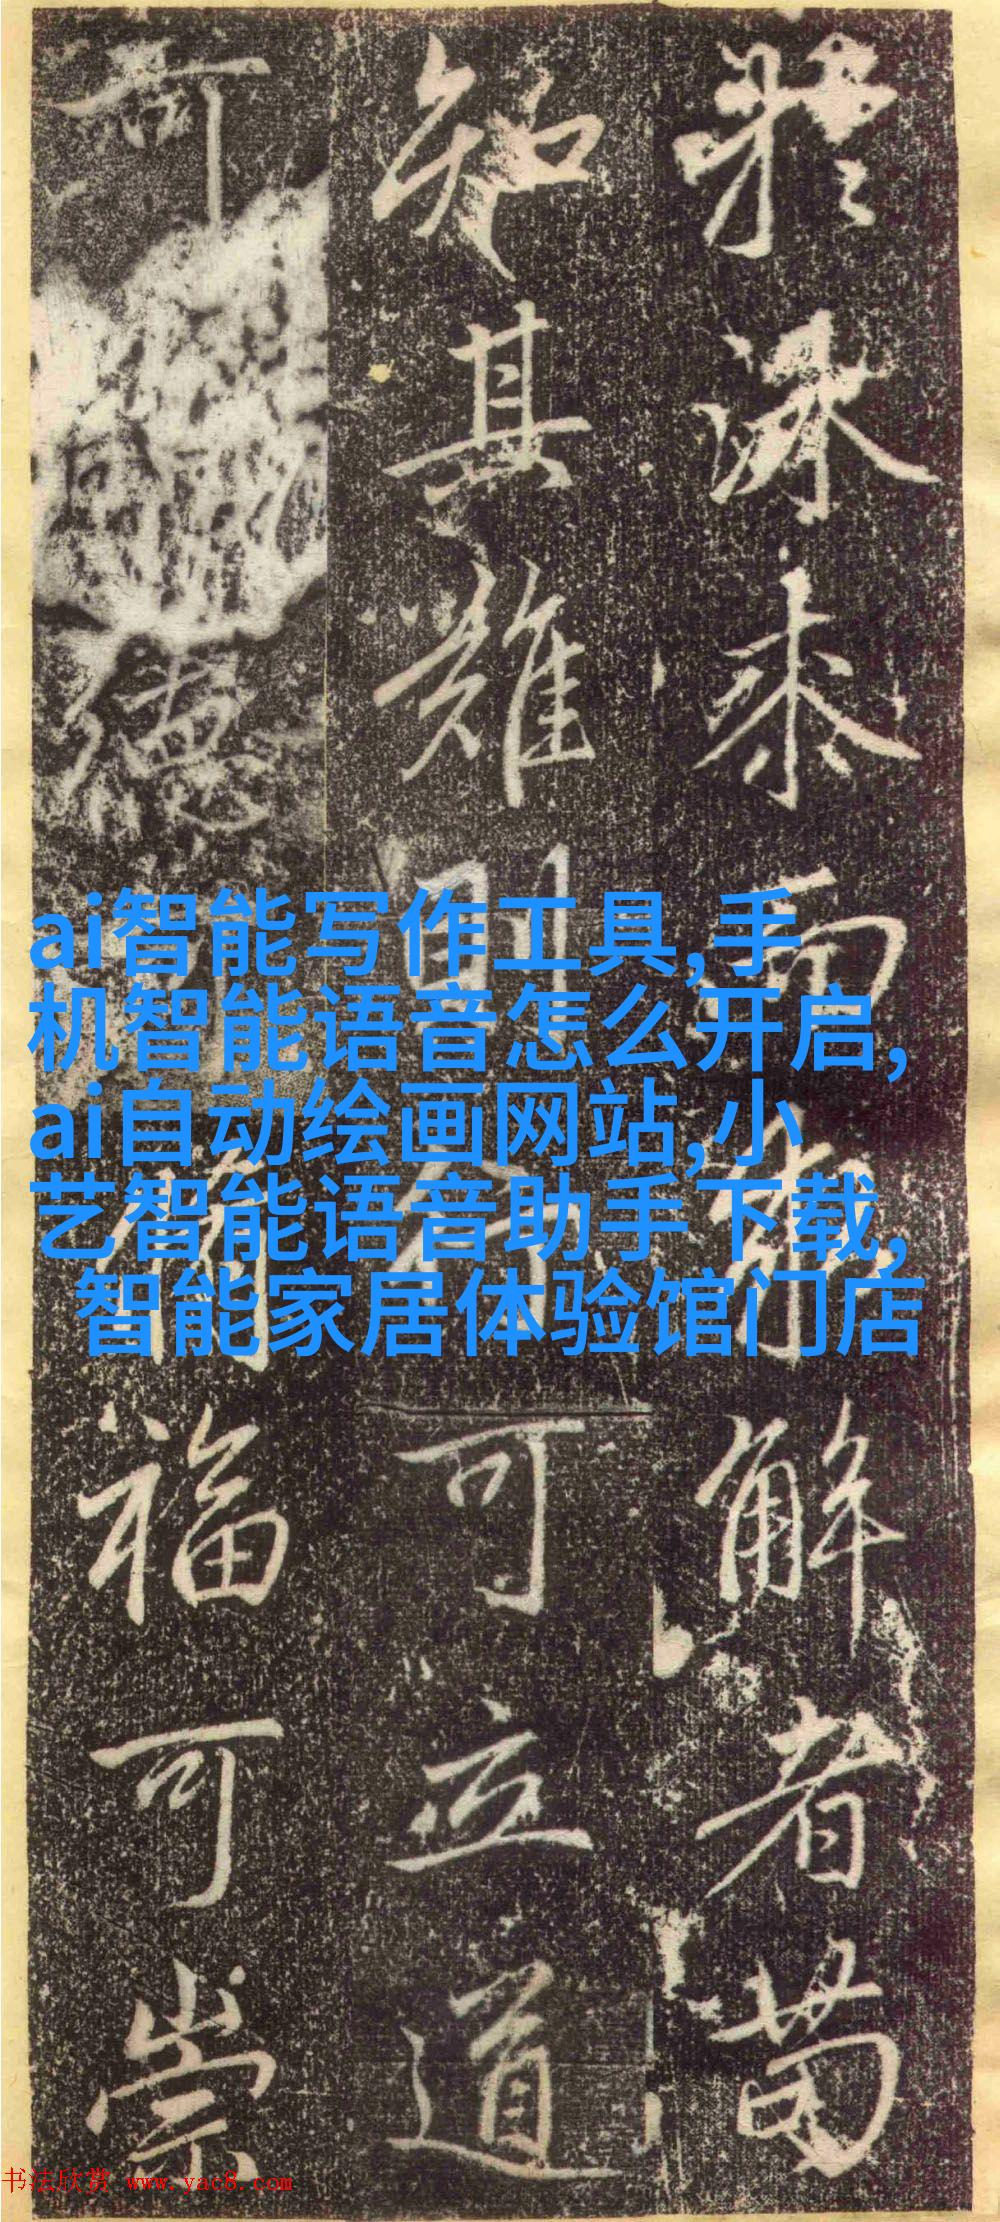 於求而解者苟
知其難則可立道
可德福可崇
ai智能写作工具,手
机智能语音怎么开启,
ai自动绘画网站,小
艺智能语音助手下载,
智能家居体验馆门店
书法欣赏 www.yac8.com